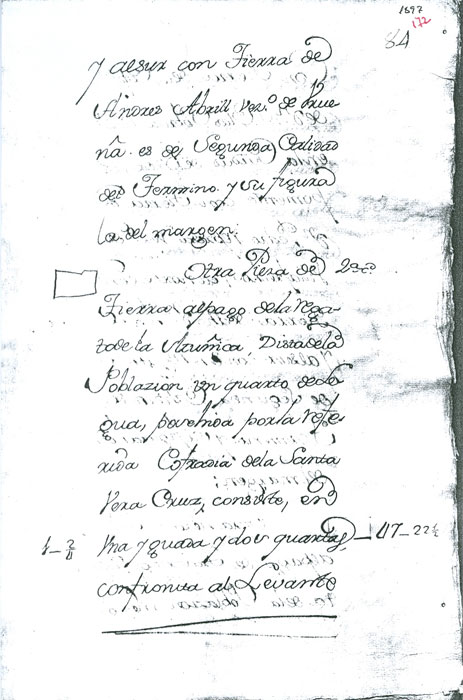 1897
172
84
y al sur con Tierra de
Andres Abrill vez.º de Prue
ña. es de Segunda Calidad
del Termino y su figura
la del margen.
Otra Pieza de
Tierra al pago de la Vega
za de la Azumica Dista de la
Poblazion un quarto de le
gua, posehida por la refe
rida Cofradia de la Santa
Vera Cruz, consiste, en
Una yguada y dos quartas
confronta al Levante